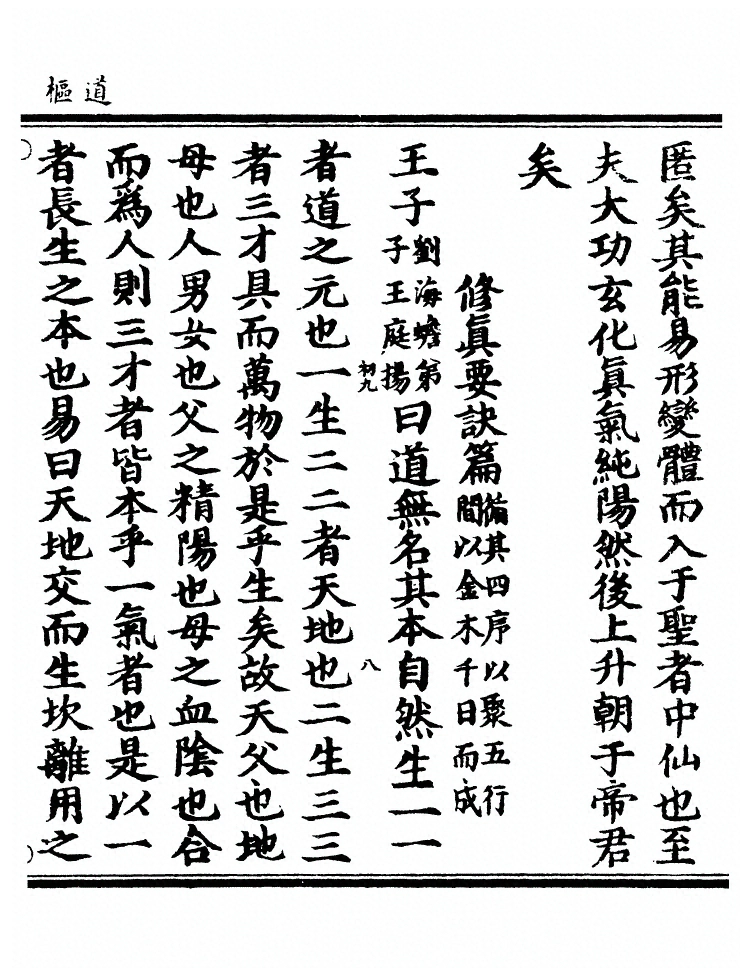 道樞
匿矣其能易形變體而入于聖者中仙也至
夫大功玄化眞氣純陽然後上升朝于帝君
矣
修眞要訣篇循其四序以聚五行
間以金木千日而成
王子劉海蟾第
子王庭揚曰道無名其本自然生一一
初九
八
者道之元也一生二二者天地也二生三三
者三才具而萬物於是乎生矣故天父也地
母也人男女也父之精陽也母之血陰也合
而爲人則三才者皆本乎一氣者也是以一
者長生之本也易曰天地交而生坎離用之